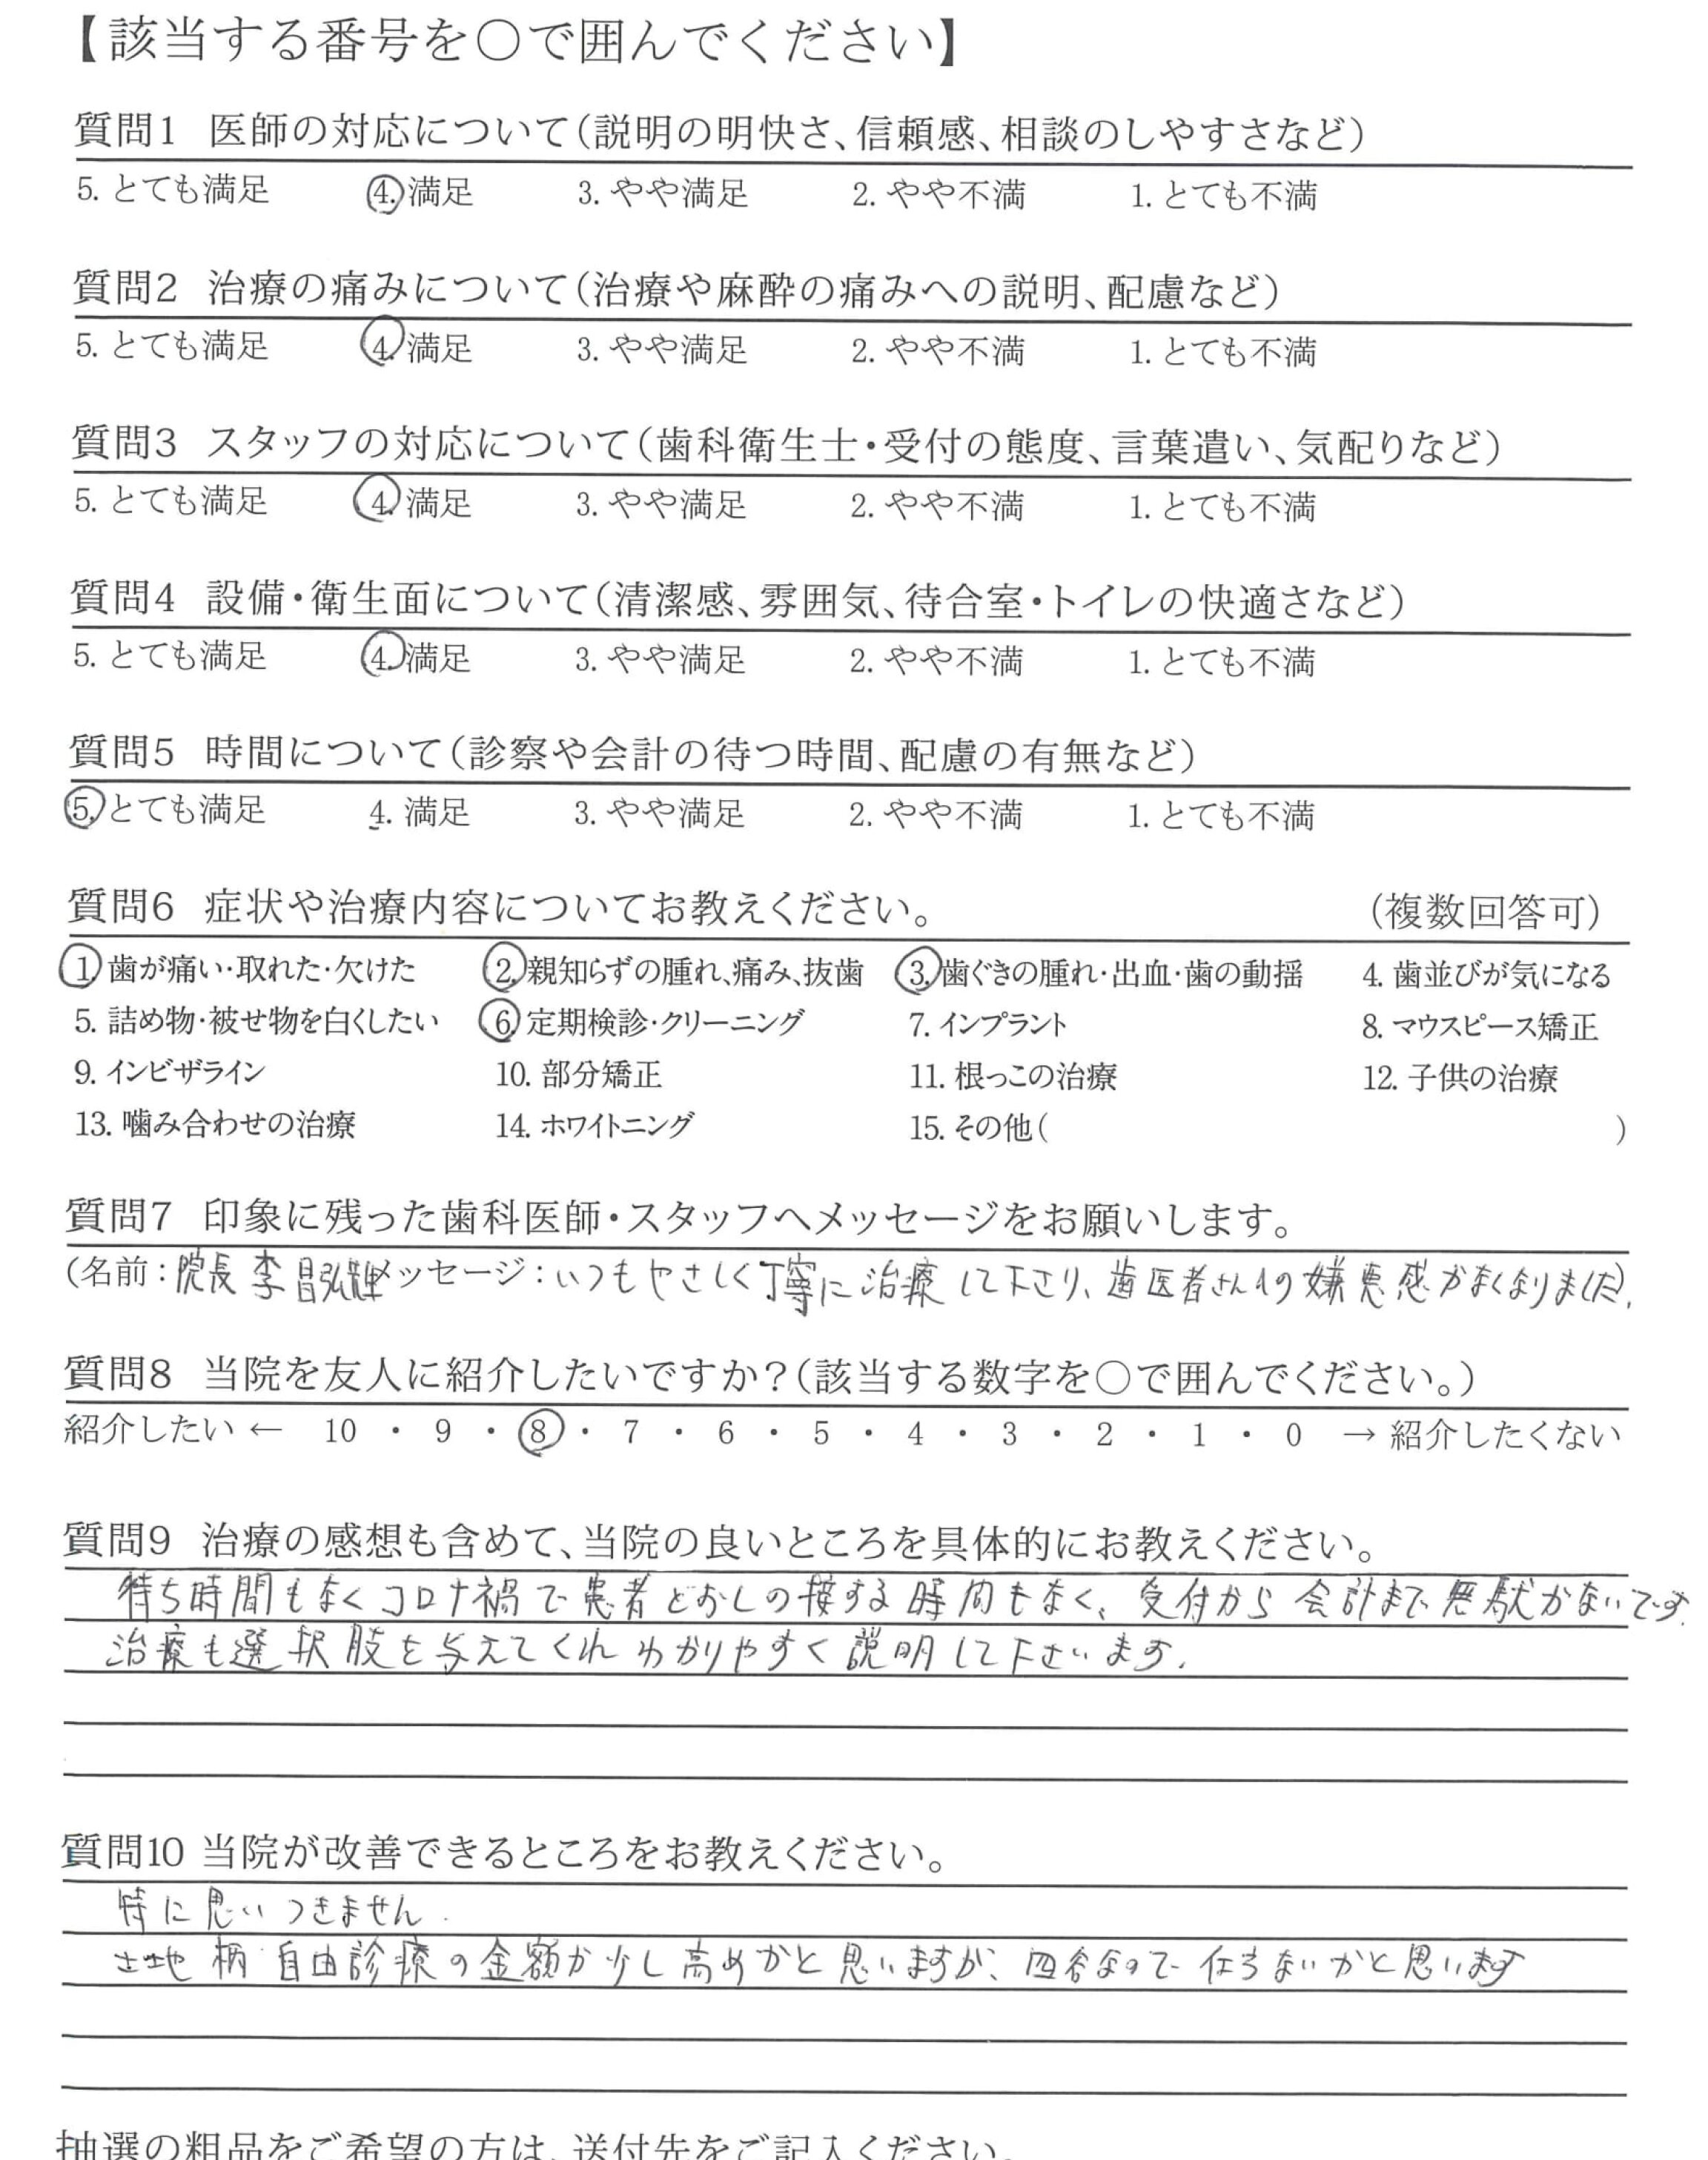 【該当する番号を〇で囲んでください】
質問1 医師の対応について(説明の明快さ、信頼感、相談のしやすさなど)
5. とても満足 4. 満足 3. やや満足 2. やや不満 1. とても不満
質問2 治療の痛みについて(治療や麻酔の痛みへの説明、配慮など)
5. とても満足 4. 満足 3. やや満足 2. やや不満 1. とても不満
質問3 スタッフの対応について(歯科衛生士・受付の態度、言葉遣い、気配りなど)
5. とても満足 4. 満足 3. やや満足 2. やや不満 1. とても不満
質問4 設備・衛生面について(清潔感、雰囲気、待合室・トイレの快適さなど)
5. とても満足 4. 満足 3. やや満足 2. やや不満 1. とても不満
質問5 時間について(診察や会計の待つ時間、配慮の有無など)
5. とても満足 4. 満足 3. やや満足 2. やや不満 1. とても不満
質問6 症状や治療内容についてお教えください。 (複数回答可)
1. 歯が痛い・取れた・欠けた 2. 親知らずの腫れ、痛み、抜歯 3. 歯ぐきの腫れ・出血・歯の動揺 4. 歯並びが気になる
5. 詰め物・被せ物を白くしたい 6. 定期検診・クリーニング 7. インプラント 8. マウスピース矯正
9. インビザライン 10. 部分矯正 11. 根っこの治療 12. 子供の治療
13. 噛み合わせの治療 14. ホワイトニング 15. その他( )
質問7 印象に残った歯科医師・スタッフへメッセージをお願いします。
(名前:院長 李昌弘 メッセージ:いつもやさしく丁寧に治療して下さり、歯医者さんへの嫌悪感がなくなりました)
質問8 当院を友人に紹介したいですか?(該当する数字を〇で囲んでください。)
紹介したい ← 10 ・ 9 ・ 8 ・ 7 ・ 6 ・ 5 ・ 4 ・ 3 ・ 2 ・ 1 ・ 0 → 紹介したくない
質問9 治療の感想も含めて、当院の良いところを具体的にお教えください。
待ち時間もなくコロナ禍で患者どおしの接する時間もなく、受付から会計まで無駄がないです。
治療も選択肢を与えてくれわかりやすく説明して下さいます。
質問10 当院が改善できるところをお教えください。
特に思いつきません.
土地柄 自由診療の金額が少し高めかと思いますが、四谷なので仕方ないかと思います
抽選の粗品をご希望の方は、送付先をご記入ください。